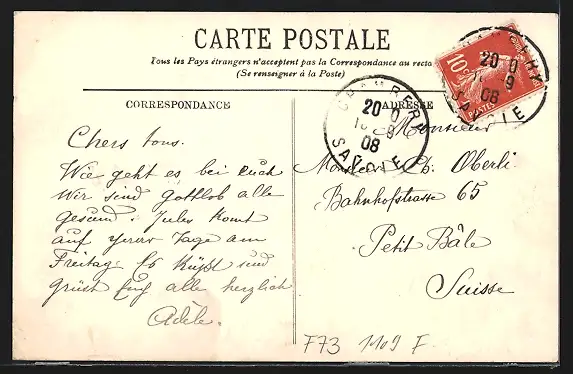 CARTE POSTALE
Tous les Pays étrangers n'acceptent pas la Correspondance au recto
(Se renseigner à la Poste)
CORRESPONDANCE
Chers tous.
Wie geht es bei euch
Wir sind Gottlob alle
gesund. Jules komt
auf Tage am
Freitag. Es Küßt und
grüst Euch alle herzlich
Adèle.
ADRESSE
Monsieur
Monsieur Ch. Oberli
Bahnhofstrasse 65
Petit Bâle
Suisse
CHAMBERY
20
08
SAVOIE
10c
POSTES
CHAMBERY
20
9
08
SAVOIE
F73 1109 F